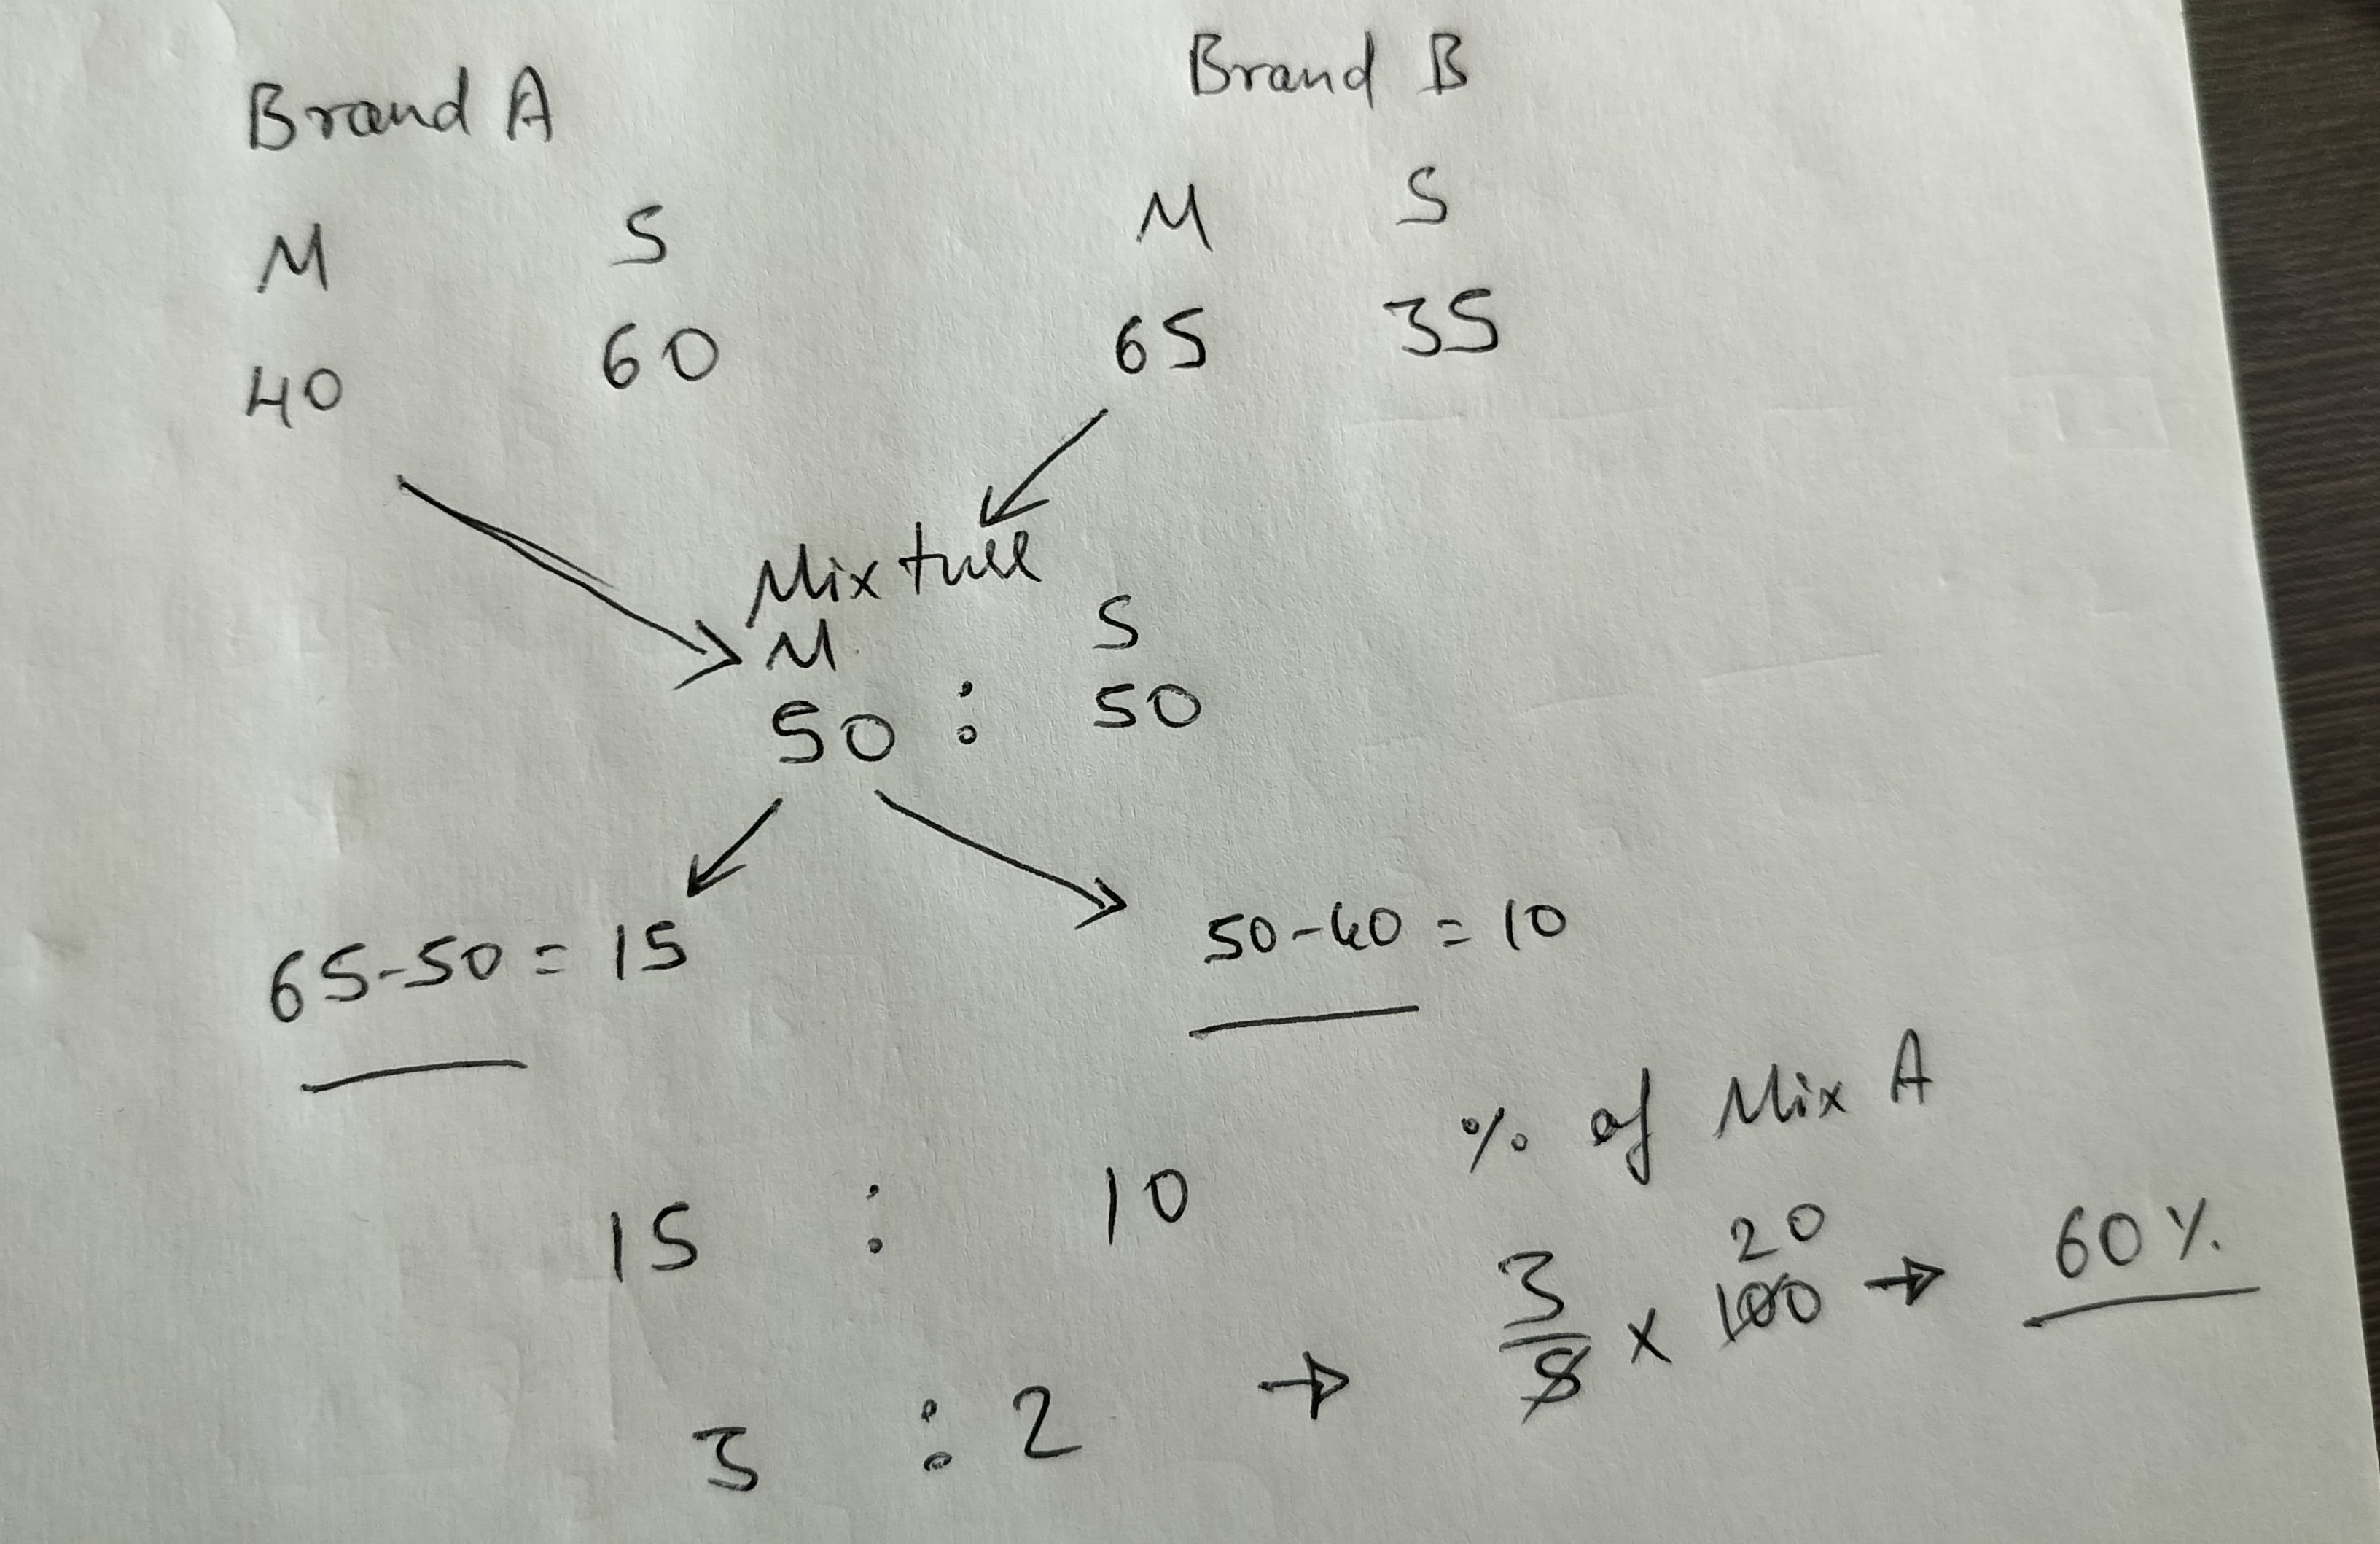 Brand A Brand B
M S M S
40 60 65 35
Mixture
M S
50 : 50
65-50 = 15 50-40 = 10
% of Mix A
15 : 10
20
3/5 x 100 → 60%
3 : 2 →